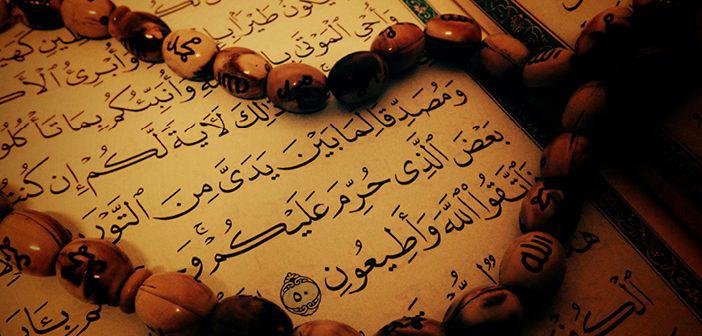 ـِّينِ كَهَيْـ
ـكُونُ طَيْرًۢا بِـ وَأُبْرِئُ ٱلْأَكْـ
وَأُحْىِ ٱلْمَوْتَىٰ بِـ ٱللَّهِ وَأُنَبِّئُكُم بِمَا تَأْكُلُو
ذَٰلِكَ لَأٓيَةً لَّكُمْ إِن كُنتُـ
وَمُصَدِّقًا لِّمَا بَيْنَ يَدَىَّ مِنَ ٱلتَّوْرَ
بَعْضَ ٱلَّذِى حُرِّمَ عَلَيْكُمْ ۚ وَ
فَٱتَّقُوا۟ ٱللَّهَ وَأَطِيعُونِ ٥٠
محمد
الله